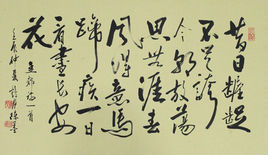 昔日龌龊
不足誇
今朝放蕩
思無涯春
風得意馬
蹄疾一日
看盡長安
花
孟郊詩一首